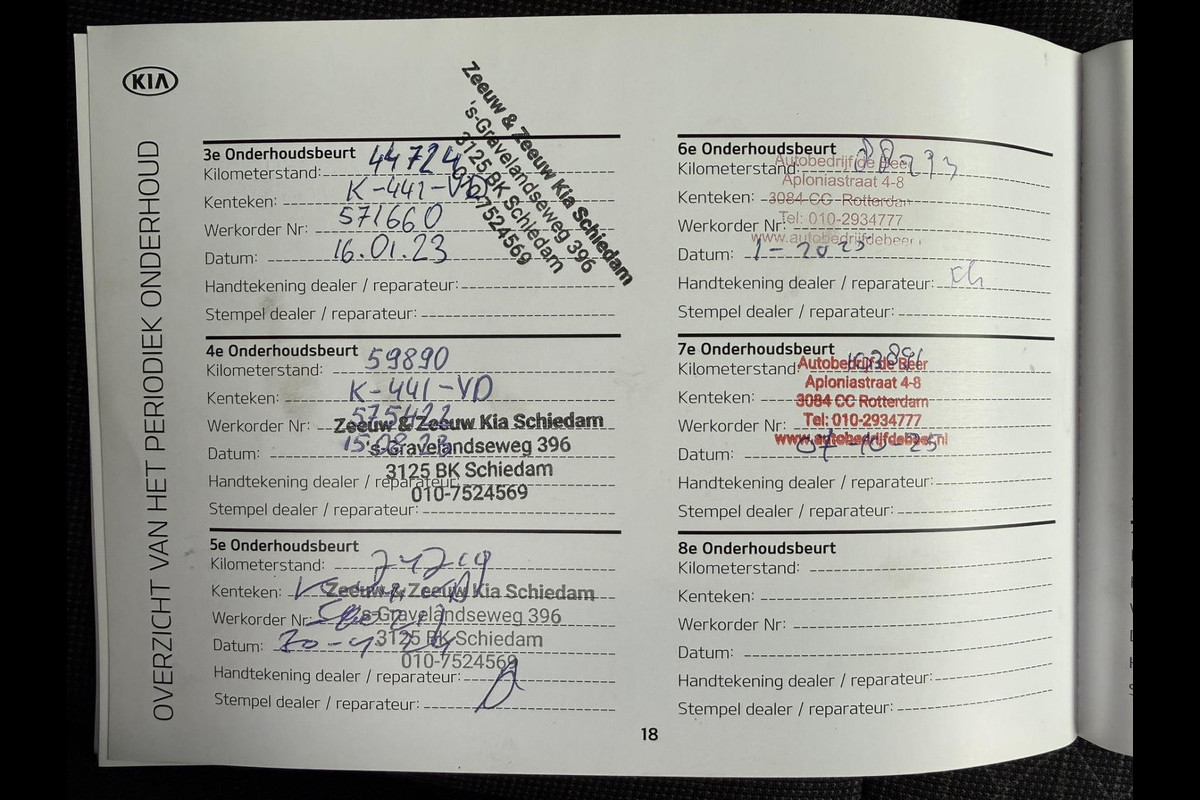 KIA
OVERZICHT VAN HET PERIODIEK ONDERHOUD
3e Onderhoudsbeurt
Kilometerstand: 44724
Kenteken: K-441-VD
Werkorder Nr: 571660
Datum: 16.01.23
Handtekening dealer / reparateur:
Stempel dealer / reparateur:
Zeeuw & Zeeuw Kia Schiedam
's-Gravelandseweg 396
3125 BK Schiedam
010-7524569
4e Onderhoudsbeurt
Kilometerstand: 59890
Kenteken: K-441-VD
Werkorder Nr:
Datum:
Handtekening dealer / reparateur:
Stempel dealer / reparateur:
Zeeuw & Zeeuw Kia Schiedam
's-Gravelandseweg 396
3125 BK Schiedam
010-7524569
5e Onderhoudsbeurt
Kilometerstand:
Kenteken:
Werkorder Nr:
Datum:
Handtekening dealer / reparateur:
Stempel dealer / reparateur:
Zeeuw & Zeeuw Kia Schiedam
's-Gravelandseweg 396
3125 BK Schiedam
010-7524569
6e Onderhoudsbeurt
Kilometerstand:
Kenteken:
Werkorder Nr:
Datum:
Handtekening dealer / reparateur:
Stempel dealer / reparateur:
Autobedrijf de Beer
Aploniastraat 4-8
3084 CC Rotterdam
Tel: 010-2934777
www.autobedrijfdebeer
7e Onderhoudsbeurt
Kilometerstand:
Kenteken:
Werkorder Nr:
Datum: 07-10-25
Handtekening dealer / reparateur:
Stempel dealer / reparateur:
Autobedrijf de Beer
Aploniastraat 4-8
3084 CC Rotterdam
Tel: 010-2934777
www.autobedrijfdebeer.nl
8e Onderhoudsbeurt
Kilometerstand:
Kenteken:
Werkorder Nr:
Datum:
Handtekening dealer / reparateur:
Stempel dealer / reparateur:
18